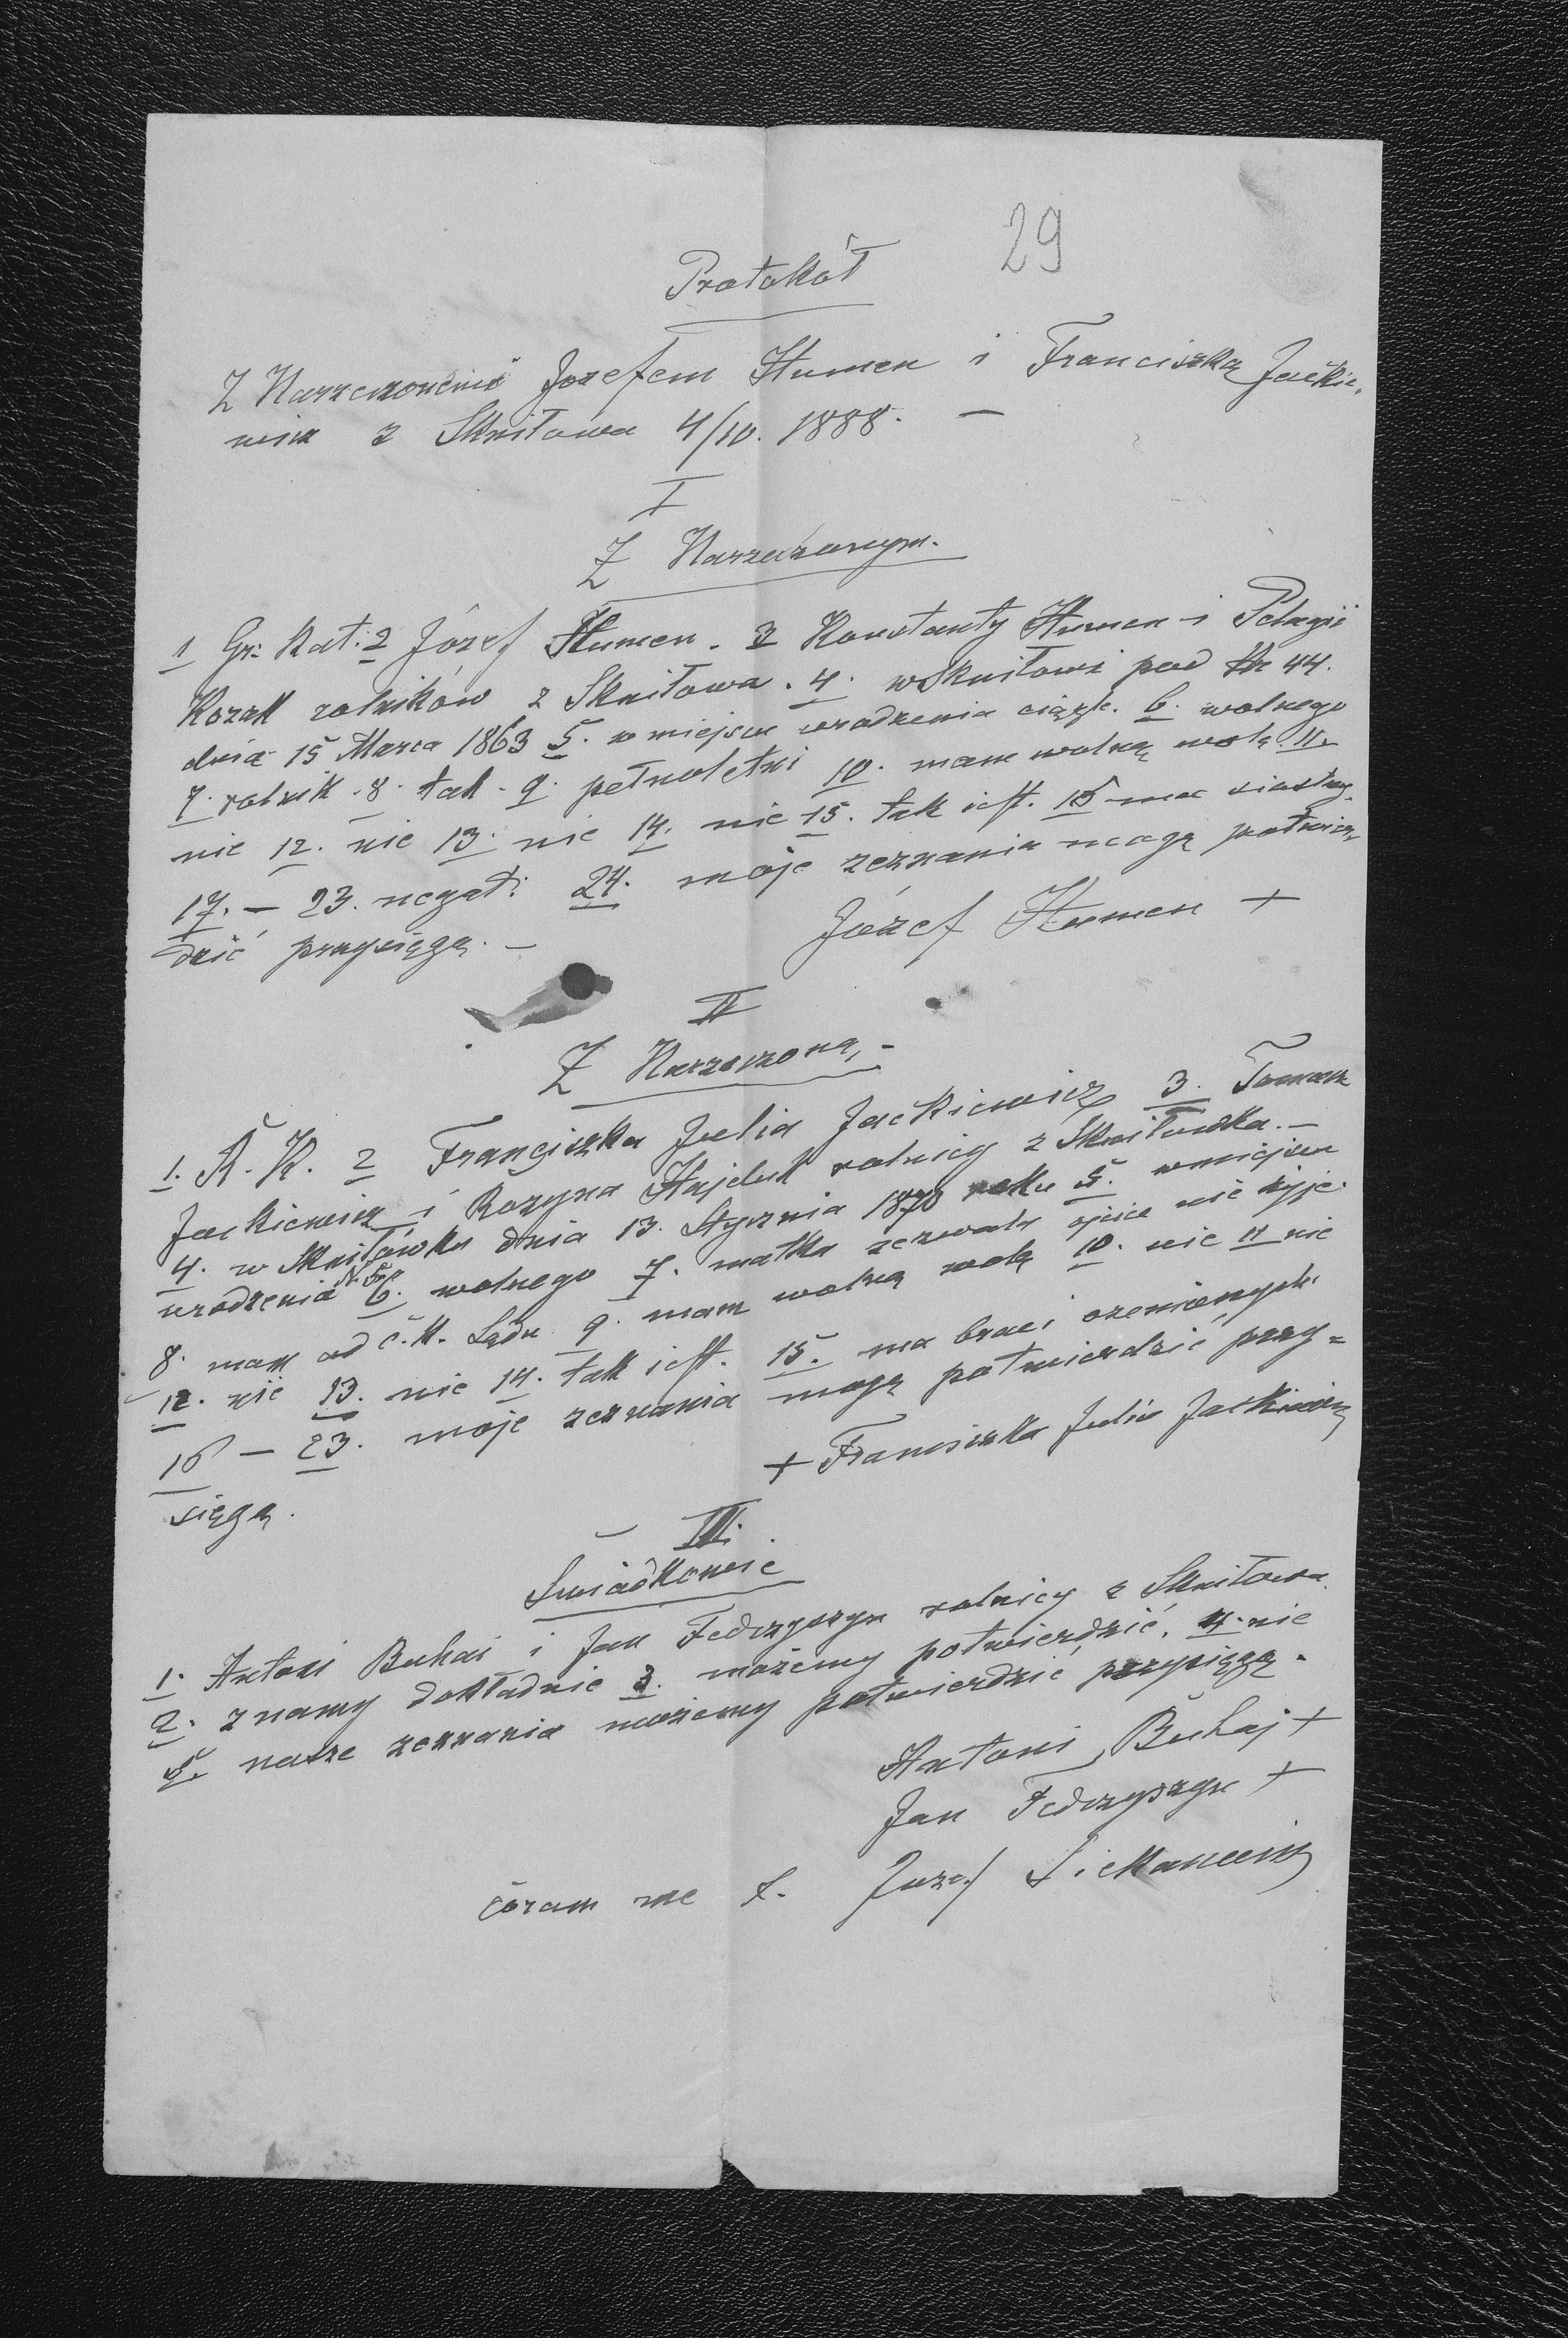 29
Protokół
Z Narzeczonemi Jozefem Humen i Franciszką Jackie-
wicz z Skniłowa 4/10. 1888. —
I
Z Narzeczonym.
1 Gr: Kat: 2 Józef Humen. 3 Konstanty Humen i Pelagii
Kozak rolników z Skniłowa. 4. w Skniłowi pod Nr 44.
dnia 15 Marca 1863 5. w miejscu urodzenia ciągle. 6. wolnego
7. rolnik. 8. tak. 9. pełnoletni 10. mam wolną wolę. 11.
nie 12. nie 13. nie 14. nie 15. tak jest. 16 ma siostry.
17. — 23. negat: 24. moje zeznania mogę potwier-
dzić przysięgą. —
Józef Humen +
II
Z Narzeczoną. -
1. R. K. 2 Franciszka Julia Jackiewicz 3. Tomasz
Jackiewicz i Rozyna Hajduk rolnicy z Skniłowka. —
4. w Skniłówku dnia 13. Stycznia 1870 roku 5. w miejscu
urodzenia 6. wolnego 7. matka zezwala ojciec nie żyje.
8. mam od c.k. Sądu 9. mam wolną wolę 10. nie 11 nie
12. nie 13. nie 14. tak jest. 15. ma braci ożenionych
16 — 23. moje zeznania mogę potwierdzić przy=
sięgą.
+ Franciszka Julia Jackiewicz
III.
Świadkowie
1. Antoni Buhai i Jan Fedczyszyn rolnicy z Skniłowa.
2. znamy dokładnie 3. możemy potwierdzić. 4. nie
5. nasze zeznania możemy potwierdzić przysięgą.
Antoni Buhaj +
Jan Fedczyszyn +
coram me X. Jozef